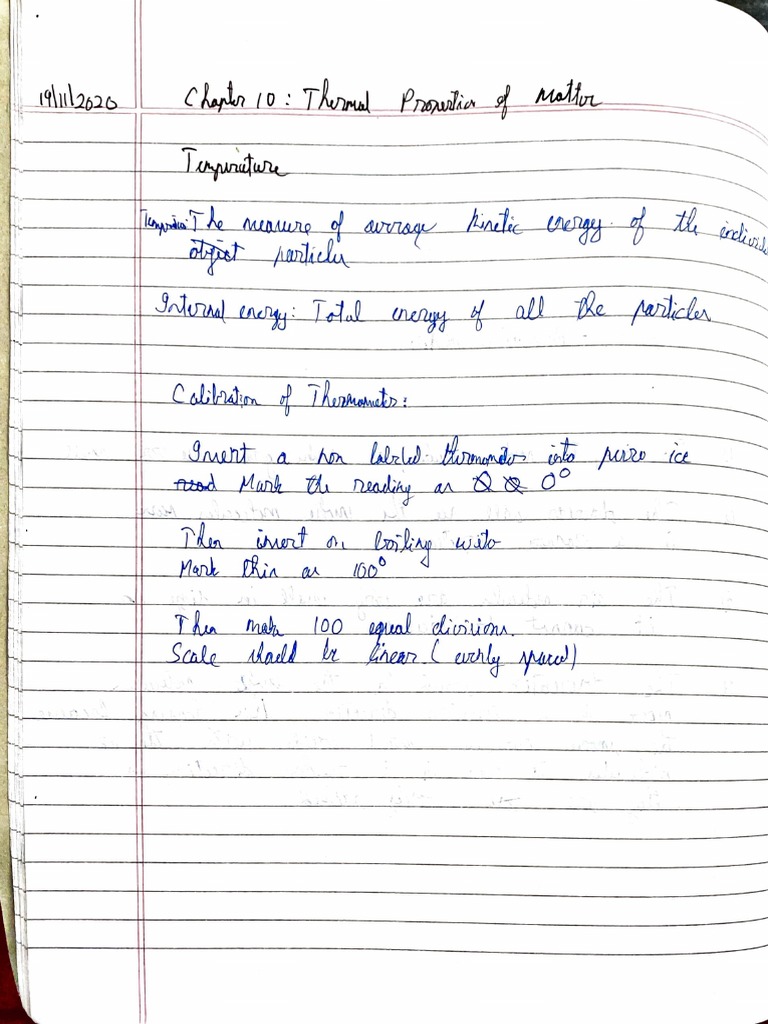 19/11/2020 Chapter 10 : Thermal Properties of Matter
Temperature
The measure of average kinetic energy of the individ
object particles
Internal energy: Total energy of all the particles
Calibration of Thermometer:
Insert a non labeled thermometer into pure ice
read Mark the reading as 0°
Then insert on boiling water
Mark this as 100°
Then make 100 equal divisions.
Scale should be linear (evenly spaced)